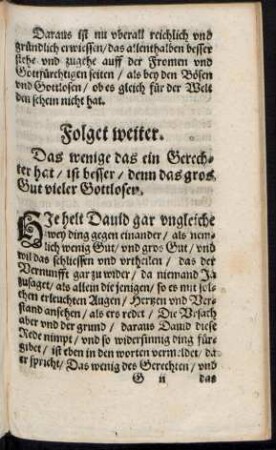 Daraus ist nu vberall reichlich vnd
gründlich erwiessen/das allenthalben besser
stehe vnd zugehe auff der Fromen vnd
Gottfürchtigen seiten / als bey den Bösen
vnd Gottlosen / ob es gleich für der Welt
den schein nicht hat.
Folget weiter.
Das wenige das ein Gerech-
ter hat / ist besser / denn das gros
Gut vieler Gottlosen.
HIe helt Dauid gar vngleiche
zwey ding gegen einander / als nem-
lich wenig Gut / vnd gros Gut / vnd
wil das schliessen vnd vrtheilen / das der
Vernunfft gar zu wider / da niemand Ja
zusaget/ als allein die jenigen / so es mit sol-
chen erleuchten Augen / Hertzen vnd Ver-
stand ansehen / als ers redet / Die Vrsach
aber vnd der grund / daraus Dauid diese
Rede nimpt / vnd so widersinnig ding für-
gibet / ist eben in den worten vermeldet / da
er spricht / Das wenig des Gerechten / vnd
G ij das